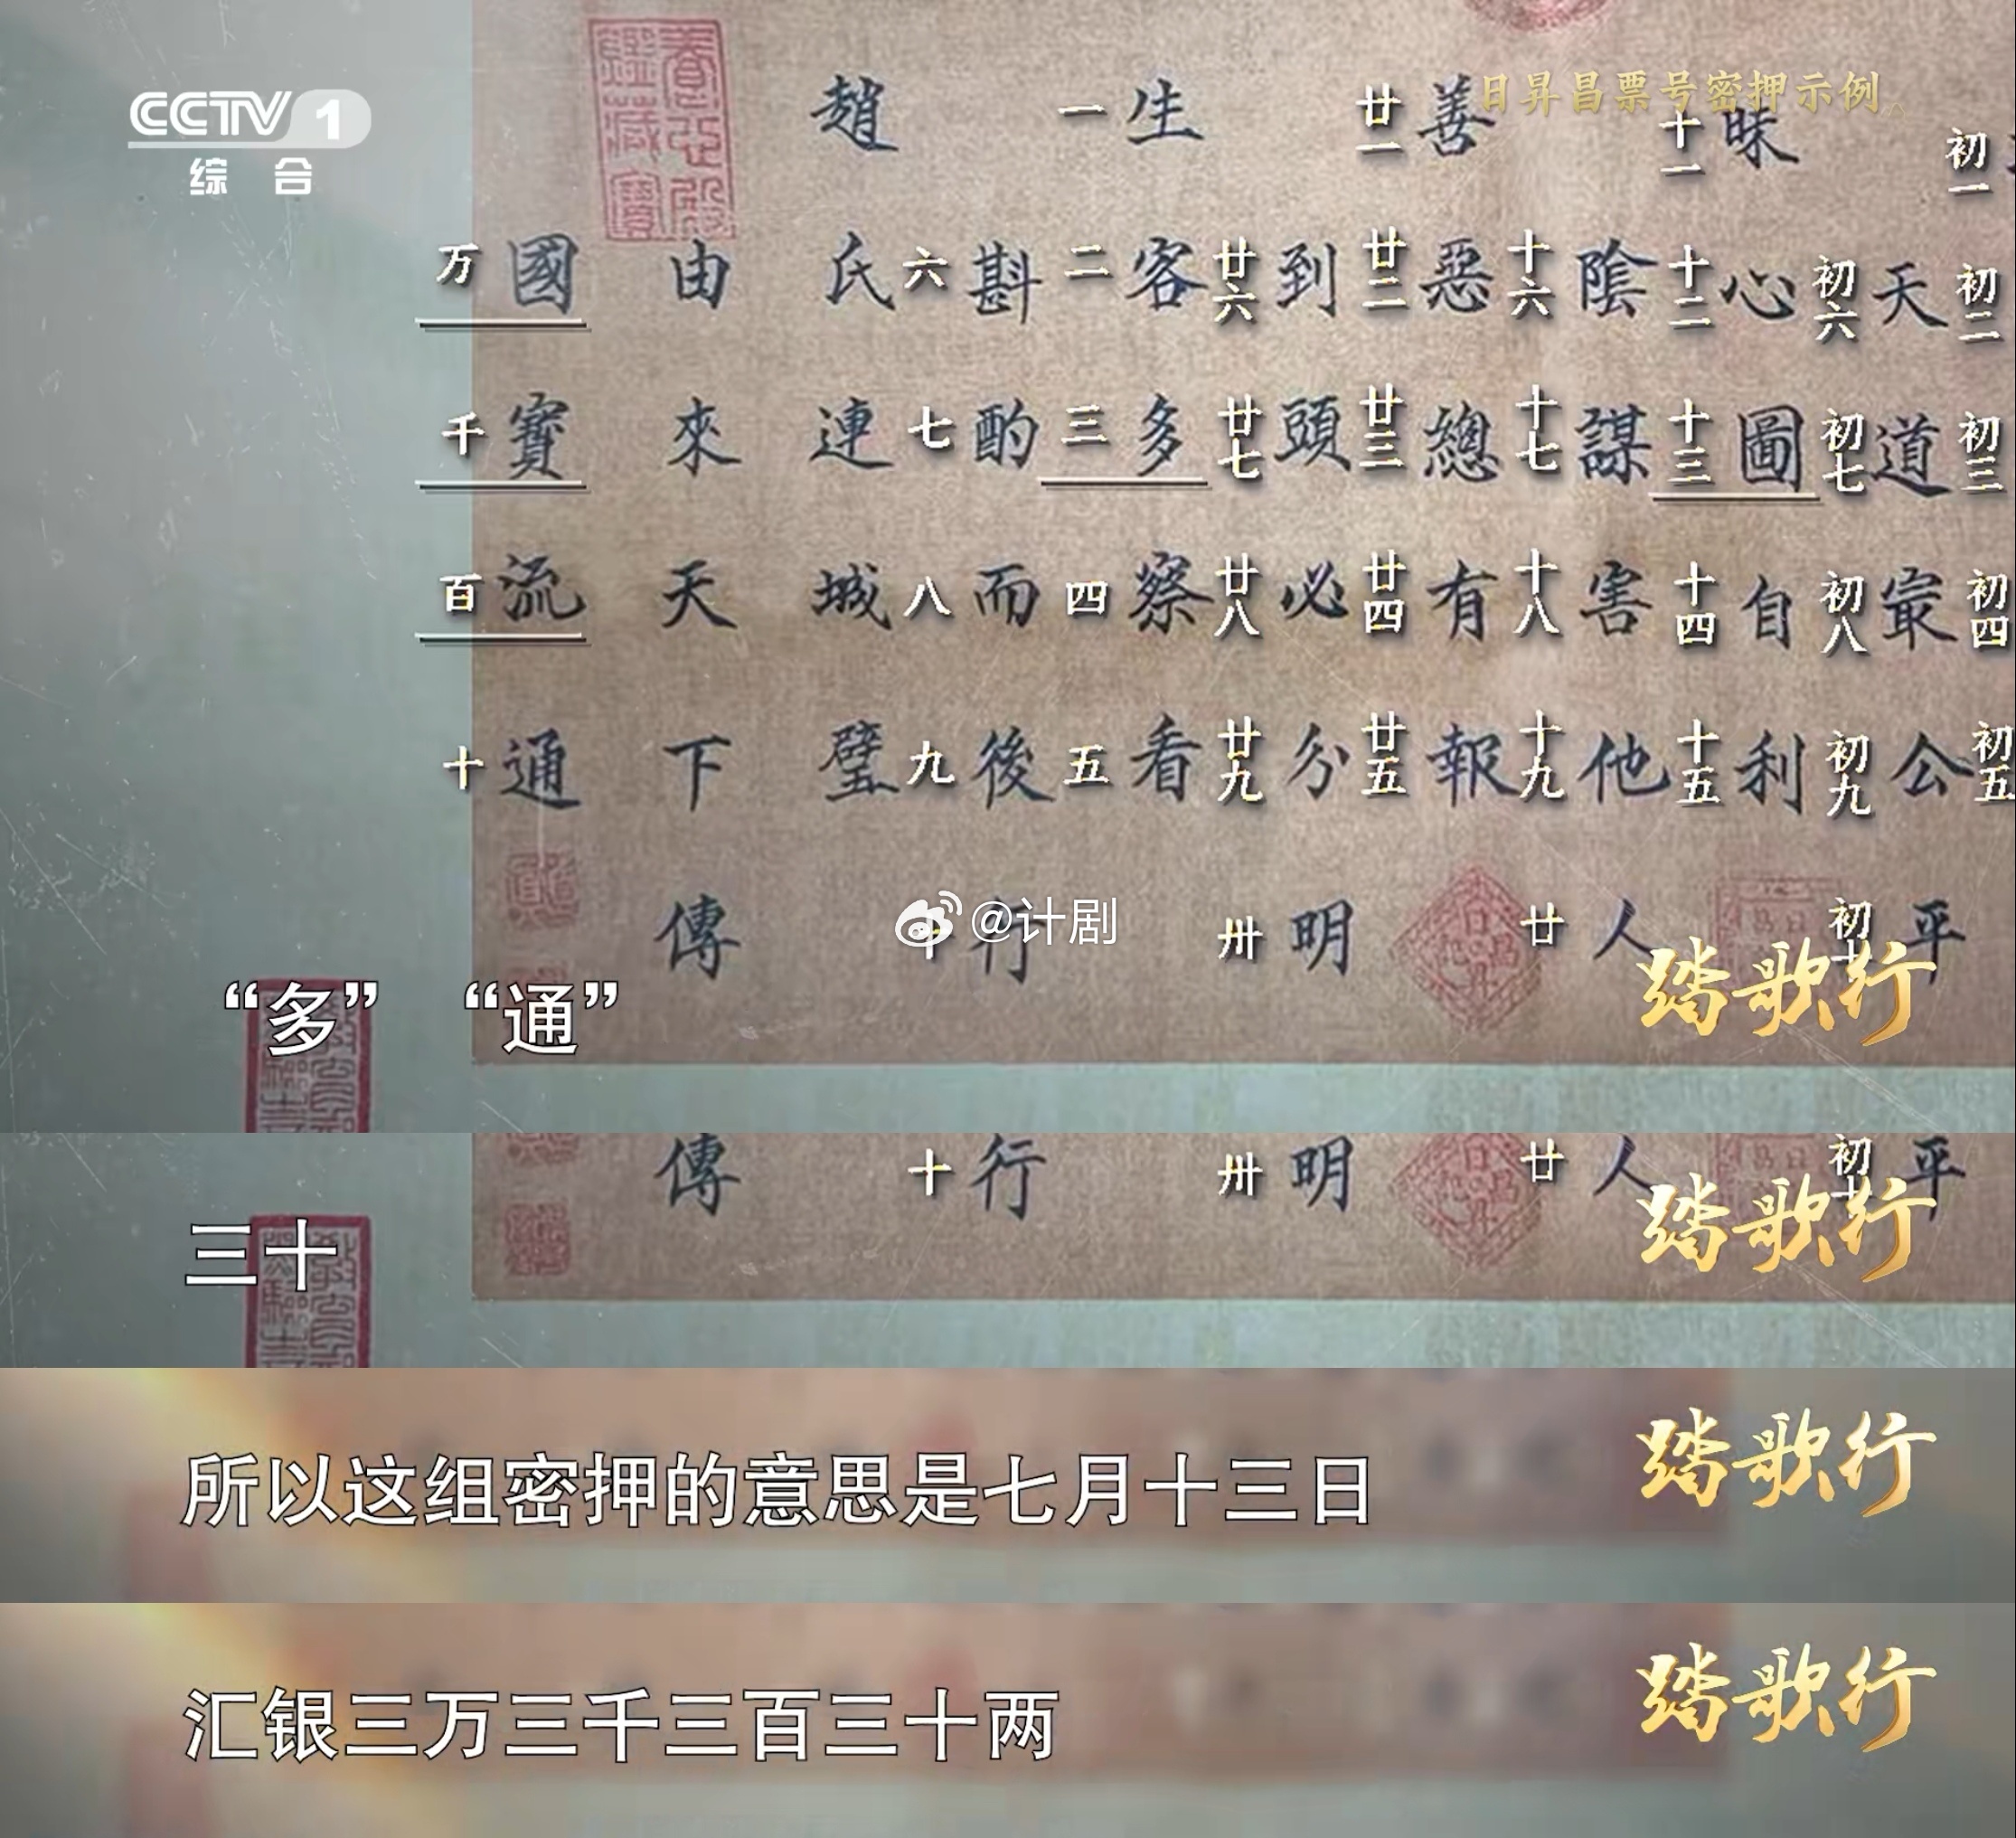 CCTV 1
综合
日昇昌票号密押示例
初一 初二 初三 初四 初五
天道最公平
初六 初七 初八 初九 初十
昧心圖自利
十一 十二 十三 十四 十五
陰謀害他人
十六 十七 十八 十九 廿
善惡總有報
廿一 廿二 廿三 廿四 廿五
到頭必分明
廿六 廿七 廿八 廿九 卅
生客多察看
一 二 三 四 五
斟酌而後行
六 七 八 九 十
趙氏連城璧
由來天下傳
國寶流通
万 千 百 十
@计剧
踏歌行
“多” “通”
傳 十 行 卅 明 廿 人 初十 平
踏歌行
三十
踏歌行
所以这组密押的意思是七月十三日
踏歌行
汇银三万三千三百三十两